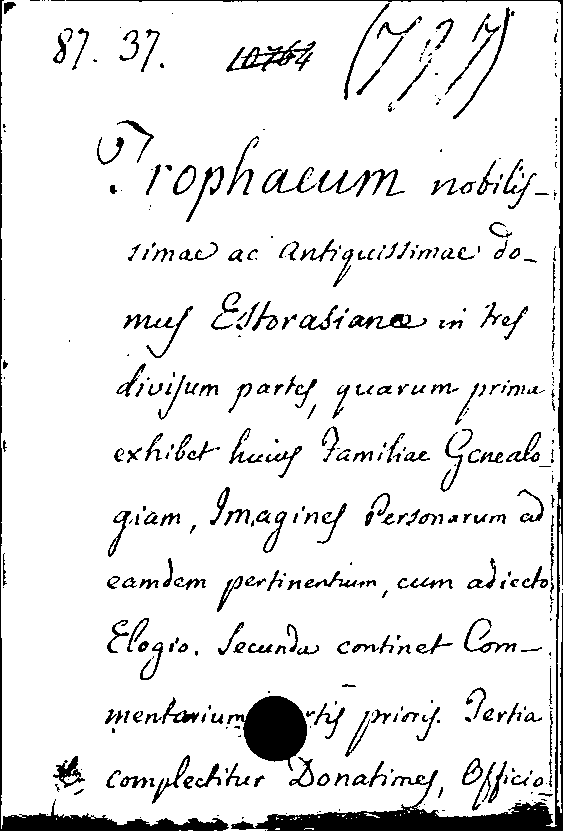 87. 37. 10764 (797)
Trophaeum nobilis-
simae ac Antiquissimae do-
mus Estorasianae in tres
divisum partes, quarum prima
exhibet huius Familiae Genealo-
giam, Imagines Personarum ad
eamdem pertinentium, cum adiecto
Elogio. Secunda continet Com-
mentarium prioris. Tertia
complectitur Donationes, Officio-